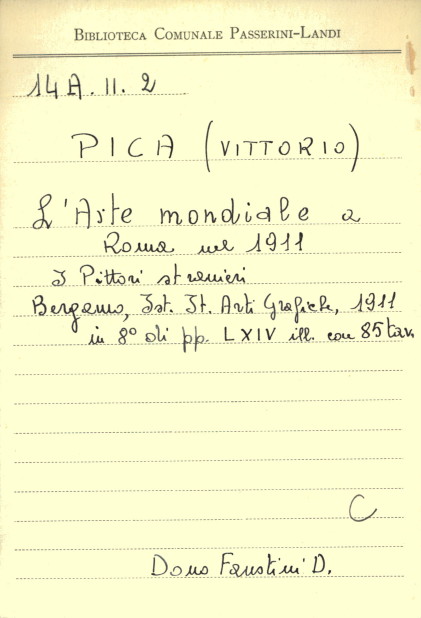 BIBLIOTECA COMUNALE PASSERINI-LANDI
14A. II. 2
PICA (VITTORIO)
L'Arte mondiale a
Roma nel 1911
I Pittori stranieri
Bergamo, Ist. It. Arti Grafiche, 1911
in 8° di pp. LXIV ill. con 85 tav.
C
Dono Faustini D.